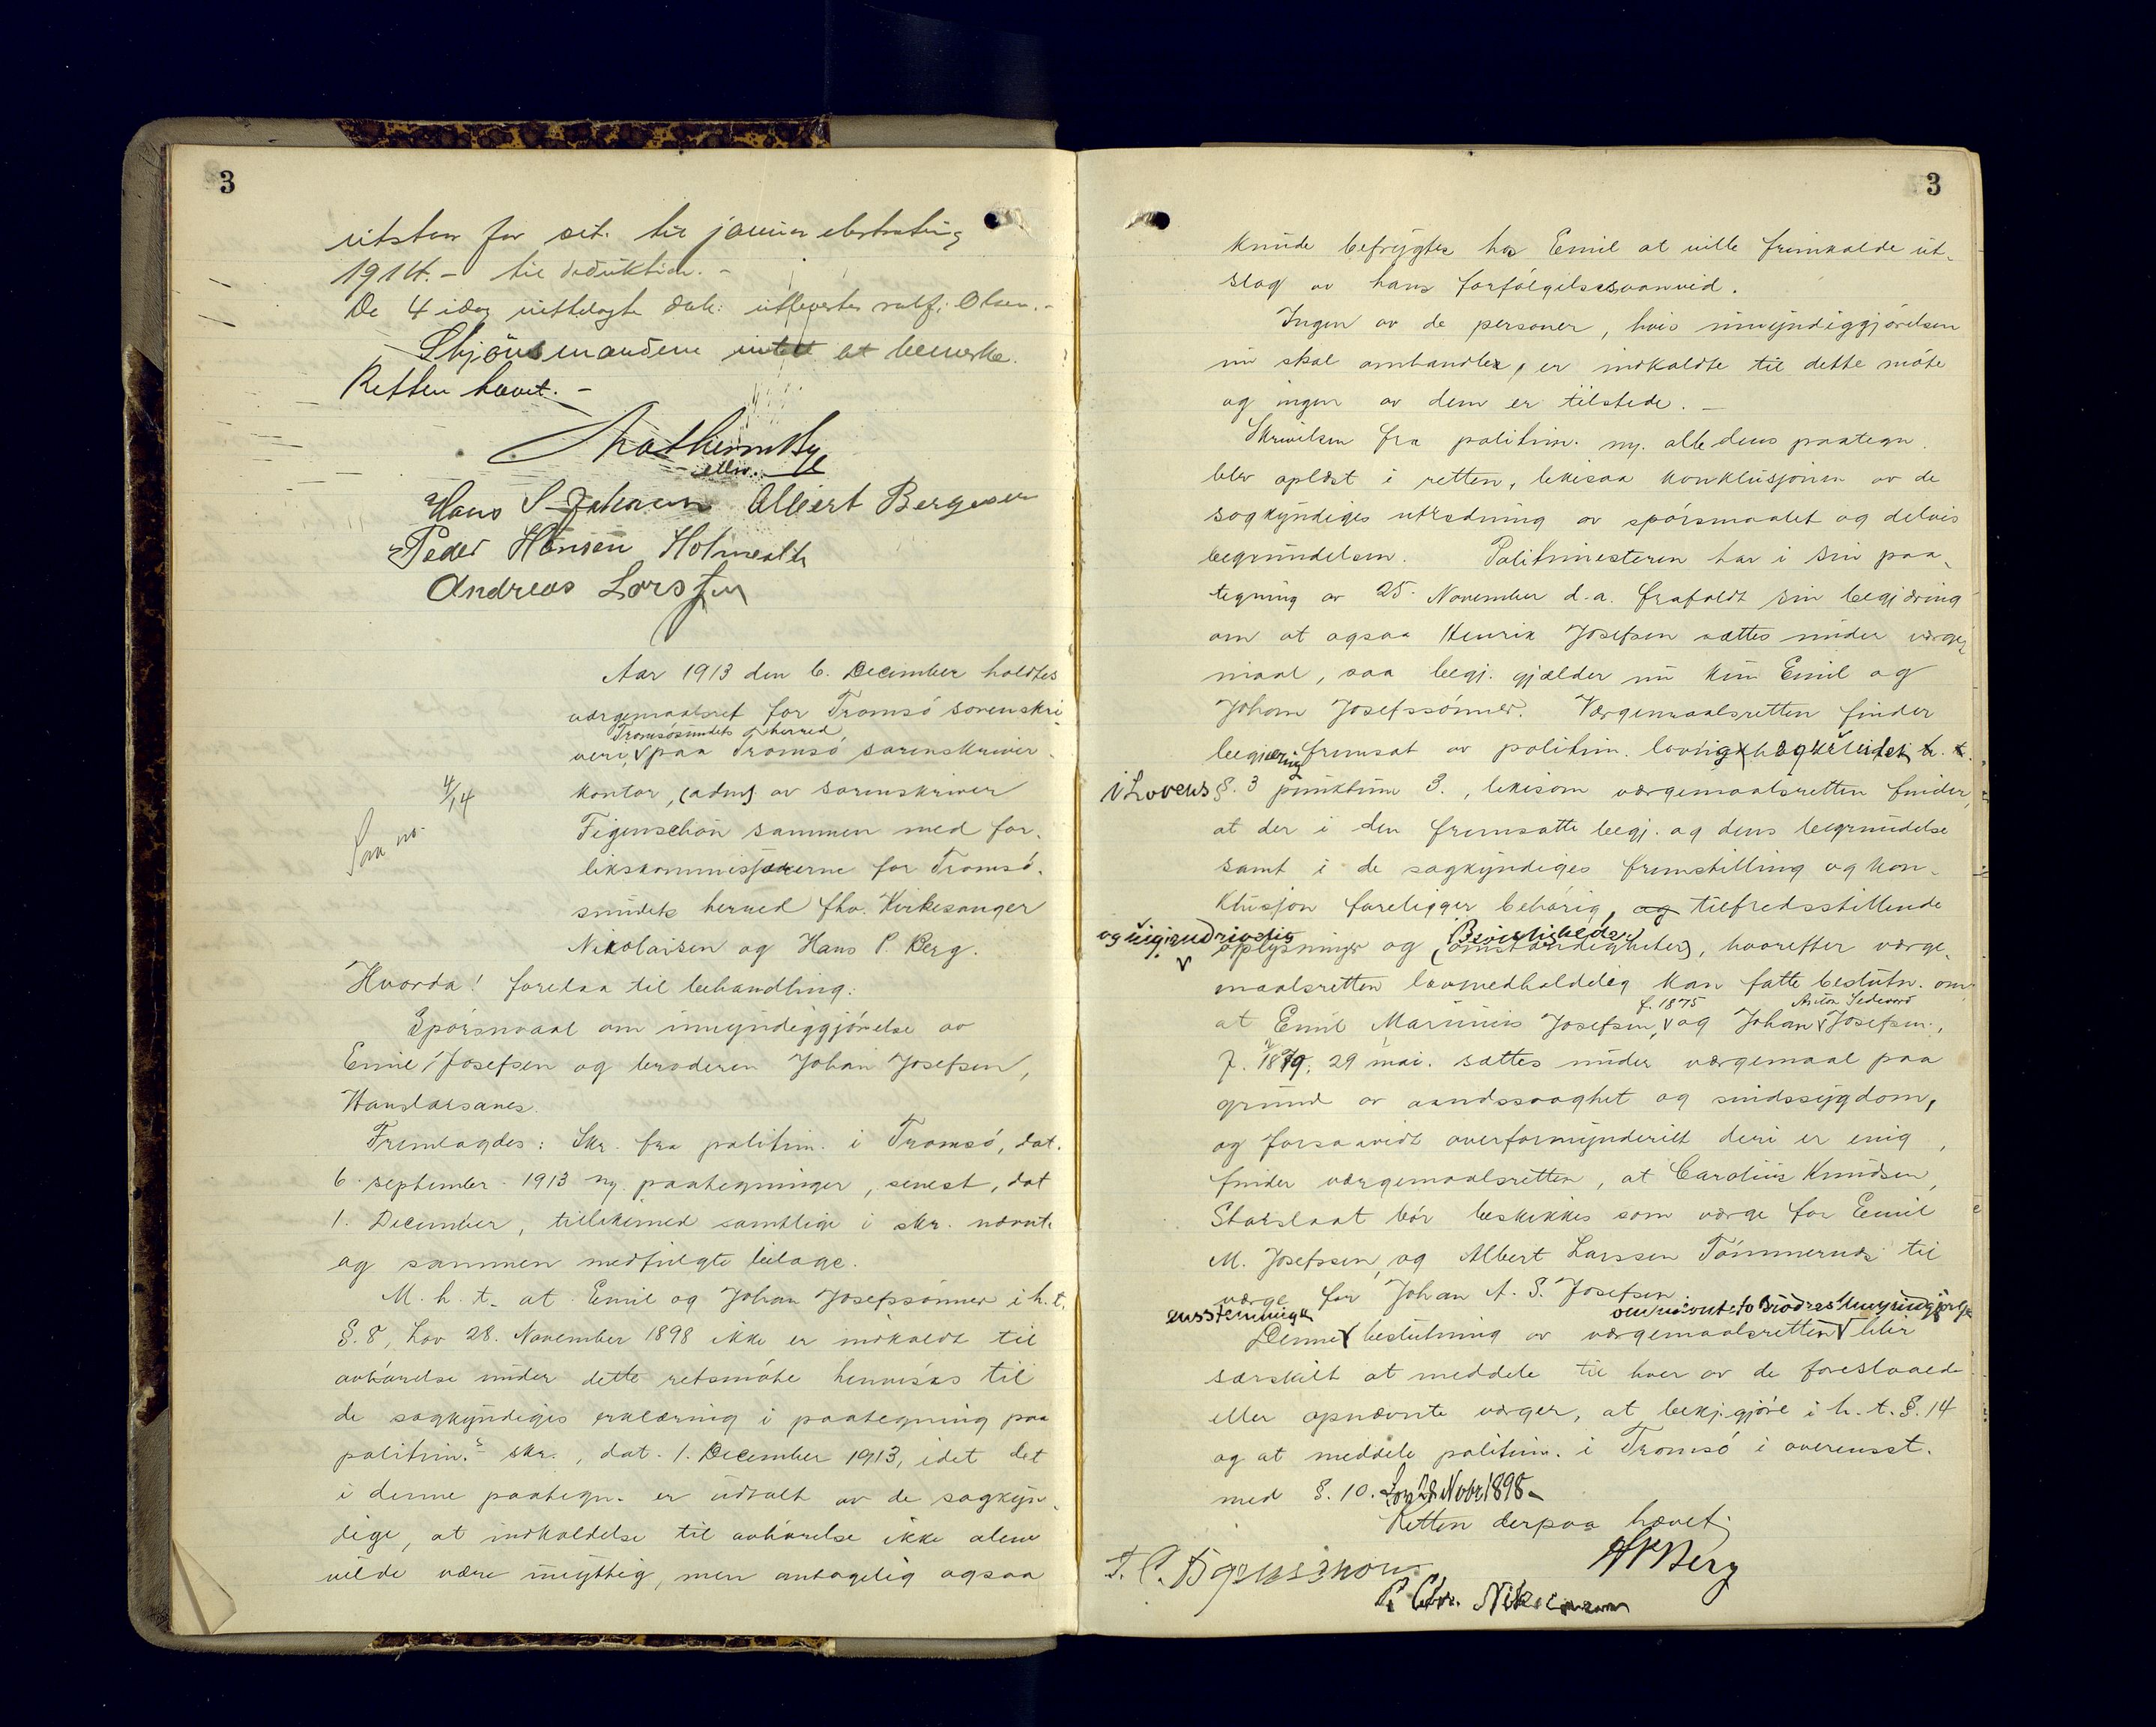 3
utstær for sit. til januar ekstrating
1914. - til deduktion. -
De 4 idag uittelagte dok: utlevertes sakf. Olsen. -
Skjönsmændene intet at bemerke.
Retten hævet. -
Hans S. Johansen Albert Bergesen
Peder Hansen Holmeslet
Andreas Larssen
Aar 1913 den 6. December holdtes
værgemaalsret for Tromsö sorenskri
Tromsösundets herred,
veri, paa Tromsö sorenskriver-
4/14
kontor, (adm) av sorenskriver
Figenschou sammen med for-
likskommissærerne for Tromsö-
sundets herred fhv. Kirkesanger
Nikolaisen og Hans P. Berg.
Hvorda! forelaa til behandling:
Spörsmaal om umyndiggjörelse av
Emil Josefsen og broderen Johan Josefsen,
Hanslarsanes.
Fremlagdes: Skr. fra politim. i Tromsö, dat.
6. september 1913 m. paategninger, senest, dat
1. December, tillikemed samtlige i skr. nævnte
og sammen medfulgte bilage.
M. h. t. at Emil og Johan Josefssönner i h. t.
§. 8, Lov 28. November 1898 ikke er indkaldt til
avhörelse under dette retsmöte henvises til
de sagkyndiges erklæring i paategning paa
politim.s skr., dat. 1. December 1913, idet det
i denne paategn. er udtalt av de sagkyn-
dige, at indkaldelse til avhörelse ikke alene
vilde være unyttig, men antagelig ogsaa
3
kunde befrygtes hos Emil at ville fremkalde ut-
slag av hans forfölgelsesvanvid.
Ingen av de personer, hvis umyndiggjörelse
nu skal omhandles, er indkaldte til dette möte
og ingen av dem er tilstede. -
Skrivelsen fra politim. m. alle dens paategn.
blev oplæst i retten, likesaa konklusjonen av de
sagkyndiges utredning av spörsmaalet og delvis
begrundelsen. Politimesteren har i sin paa-
tegning av 25. November d. a. frafaldt sin begjæring
om at ogsaa Henrik Josefsen sættes under værge-
maal, saa begj. gjælder nu kun Emil og
Johan Josefssönner. Værgemaalsretten finder
begjæring fremsat av politim. lovlig
i Lovens §. 3 punktum 3., likesom værgemaalsretten finder,
at der i den fremsatte begj. og dens begrundelse
samt i de sagkyndiges fremstilling og kon-
klusjon foreligger behörig, og tilfredsstillende
Bevisligheder
oplysninger og (omstændigheter), hvorefter værge-
maalsretten lovmedholdelig kan fatte beslutn. om
f. 1875 Anton Sedevard
at Emil Marinius Josefsen, og Johan Josefsen,
f. 1879. 29 mai. sættes under værgemaal paa
grund av aandssvaghet og sindssygdom,
og forsaavidt overformynderiet deri er enig,
finder værgemaalsretten, at Carolius Knudsen,
Storslaat bör beskikkes som værge for Emil
M. Josefssen, og Albert Larssen Tömmernes til
værge for Johan A. S. Josefsen.
enstemmige om nævnte to Brödres Umyndiggjörelse
Denne beslutning av værgemaalsretten blir
særskilt at meddele til hver av de foreslaaede
eller opnævnte værger, at bekj.gjöre i h. t. §. 14
og at meddele politim. i Tromsö i overensst.
med §. 10. Lov 28 Novbr 1898 -
Retten derpaa hævet.
F. C. Figenschou HPBerg
P. Chr. Nikolaisen